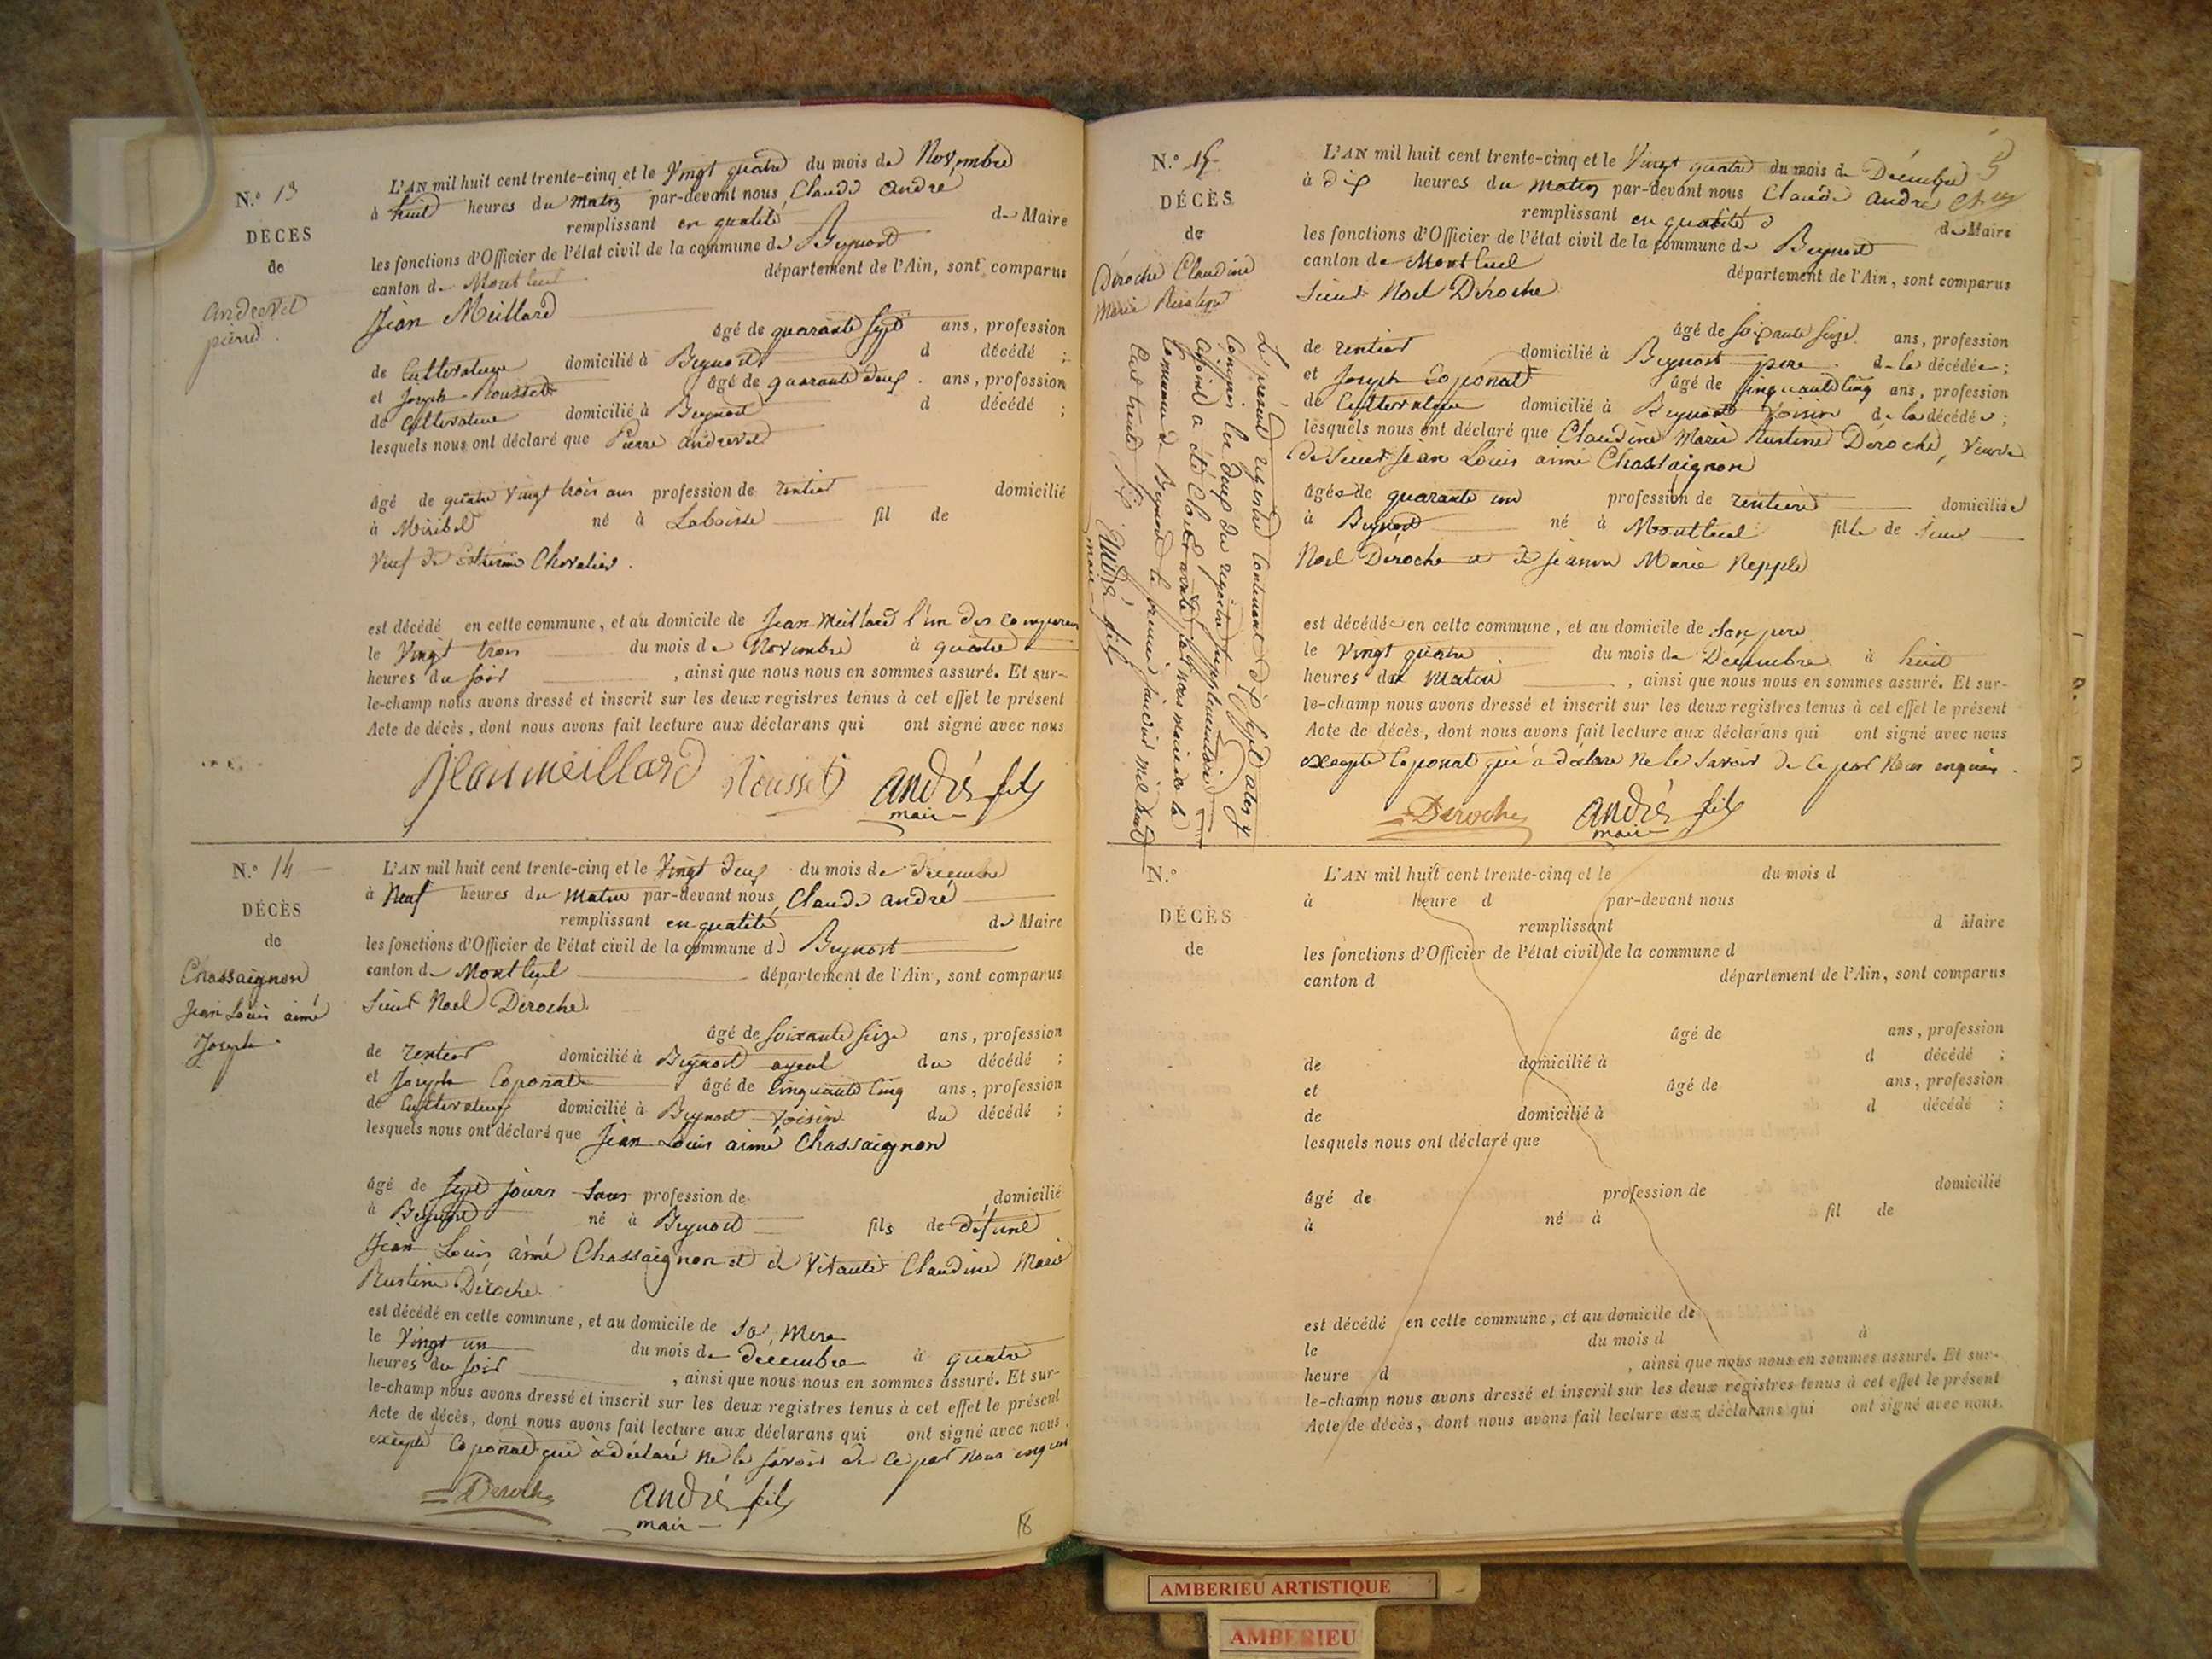 N.° 13
DÉCÈS
de
Andrevet
pierre
L'AN mil huit cent trente-cinq et le Vingt quatre du mois de Novembre
à huit heures du matin par-devant nous Claude André
remplissant en qualité de Maire
les fonctions d'Officier de l'état civil de la commune de Beynost
canton de Montluel département de l'Ain, sont comparus
Jean Meillard
âgé de quarante sept ans, profession
de Cultivateur domicilié à Beynost d décédé ;
et Joseph Rousset âgé de quarante deux ans, profession
de Cultivateur domicilié à Beynost d décédé ;
lesquels nous ont déclaré que Pierre andrevet
âgé de quatre Vingt trois ans profession de rentier domicilié
à Miribel né à Laboisse fil de
Veuf de Chevalier.
est décédé en cette commune, et au domicile de Jean Meillard l'un des comparus
le Vingt trois du mois de Novembre à quatre
heures du soir , ainsi que nous nous en sommes assuré. Et sur-
le-champ nous avons dressé et inscrit sur les deux registres tenus à cet effet le présent
Acte de décès, dont nous avons fait lecture aux déclarans qui ont signé avec nous
Jean meillard Rousset André fils
maire
N.° 14
DÉCÈS
de
Chassaignon
Jean Louis aimé
Joseph
L'AN mil huit cent trente-cinq et le Vingt deux du mois de décembre
à Neuf heures du matin par-devant nous Claude andré
remplissant en qualité de Maire
les fonctions d'Officier de l'état civil de la commune de Beynost
canton de Montluel département de l'Ain, sont comparus
Sieur Noel Déroche
âgé de soixante seize ans, profession
de rentier domicilié à Beynost ayeul du décédé ;
et Joseph Coponat âgé de Cinquante Cinq ans, profession
de Cultivateur domicilié à Beynost voisin du décédé ;
lesquels nous ont déclaré que Jean Louis aimé Chassaignon
âgé de sept jours Sans profession de domicilié
à Beynost né à Beynost fils de défunt
Jean Louis aimé Chassaignon et de Vivante Claudine Marie
Rustine Déroche
est décédé en cette commune, et au domicile de sa Mere
le Vingt un du mois de décembre à quatre
heures du soir , ainsi que nous nous en sommes assuré. Et sur-
le-champ nous avons dressé et inscrit sur les deux registres tenus à cet effet le présent
Acte de décès, dont nous avons fait lecture aux déclarans qui ont signé avec nous
excepté Coponat qui a déclaré ne le savoir de ce par nous enquis
Deroche André fils
maire
18
N.° 15
DÉCÈS
de
Déroche Claudine
Marie Rustine
L'AN mil huit cent trente-cinq et le Vingt quatre du mois de Décembre
à dix heures du matin par-devant nous Claude andré
remplissant en qualité de Maire
les fonctions d'Officier de l'état civil de la commune de Beynost
canton de Montluel département de l'Ain, sont comparus
Sieur Noel Déroche
âgé de soixante seize ans, profession
de rentier domicilié à Beynost pere de la décédée ;
et Joseph Coponat âgé de Cinquante Cinq ans, profession
de Cultivateur domicilié à Beynost voisin de la décédée ;
lesquels nous ont déclaré que Claudine Marie Rustine Déroche, veuve
de Sieur Jean Louis aimé Chassaignon
âgée de quarante un profession de rentiere domiciliée
à Beynost né à Montluel fille de sieur
Noel Déroche et de Jeanne Marie Repple
est décédée en cette commune, et au domicile de son pere
le Vingt quatre du mois de Décembre à huit
heures du Matin , ainsi que nous nous en sommes assuré. Et sur-
le-champ nous avons dressé et inscrit sur les deux registres tenus à cet effet le présent
Acte de décès, dont nous avons fait lecture aux déclarans qui ont signé avec nous
excepté Coponat qui a déclare ne le savoir de ce par nous enquis.
Deroche André fils
maire
Le présent registre Contenant dix sept actes y
Compris les deux du registre supplementaire
a été Clos et arreté par nous maire de la
Commune de Beynost le premier janvier mil huit
Cent trente six
André fils
maire
N.°
DÉCÈS
de
L'AN mil huit cent trente-cinq et le du mois d
à heure d par-devant nous
remplissant d Maire
les fonctions d'Officier de l'état civil de la commune d
canton d département de l'Ain, sont comparus
âgé de ans, profession
de domicilié à d décédé ;
et âgé de ans, profession
de domicilié à d décédé ;
lesquels nous ont déclaré que
âgé de profession de domicilié
à né à fil de
est décédé en cette commune, et au domicile de
le du mois d à
heure d , ainsi que nous nous en sommes assuré. Et sur-
le-champ nous avons dressé et inscrit sur les deux registres tenus à cet effet le présent
Acte de décès, dont nous avons fait lecture aux déclarans qui ont signé avec nous.
AMBERIEU ARTISTIQUE
AMBERIEU